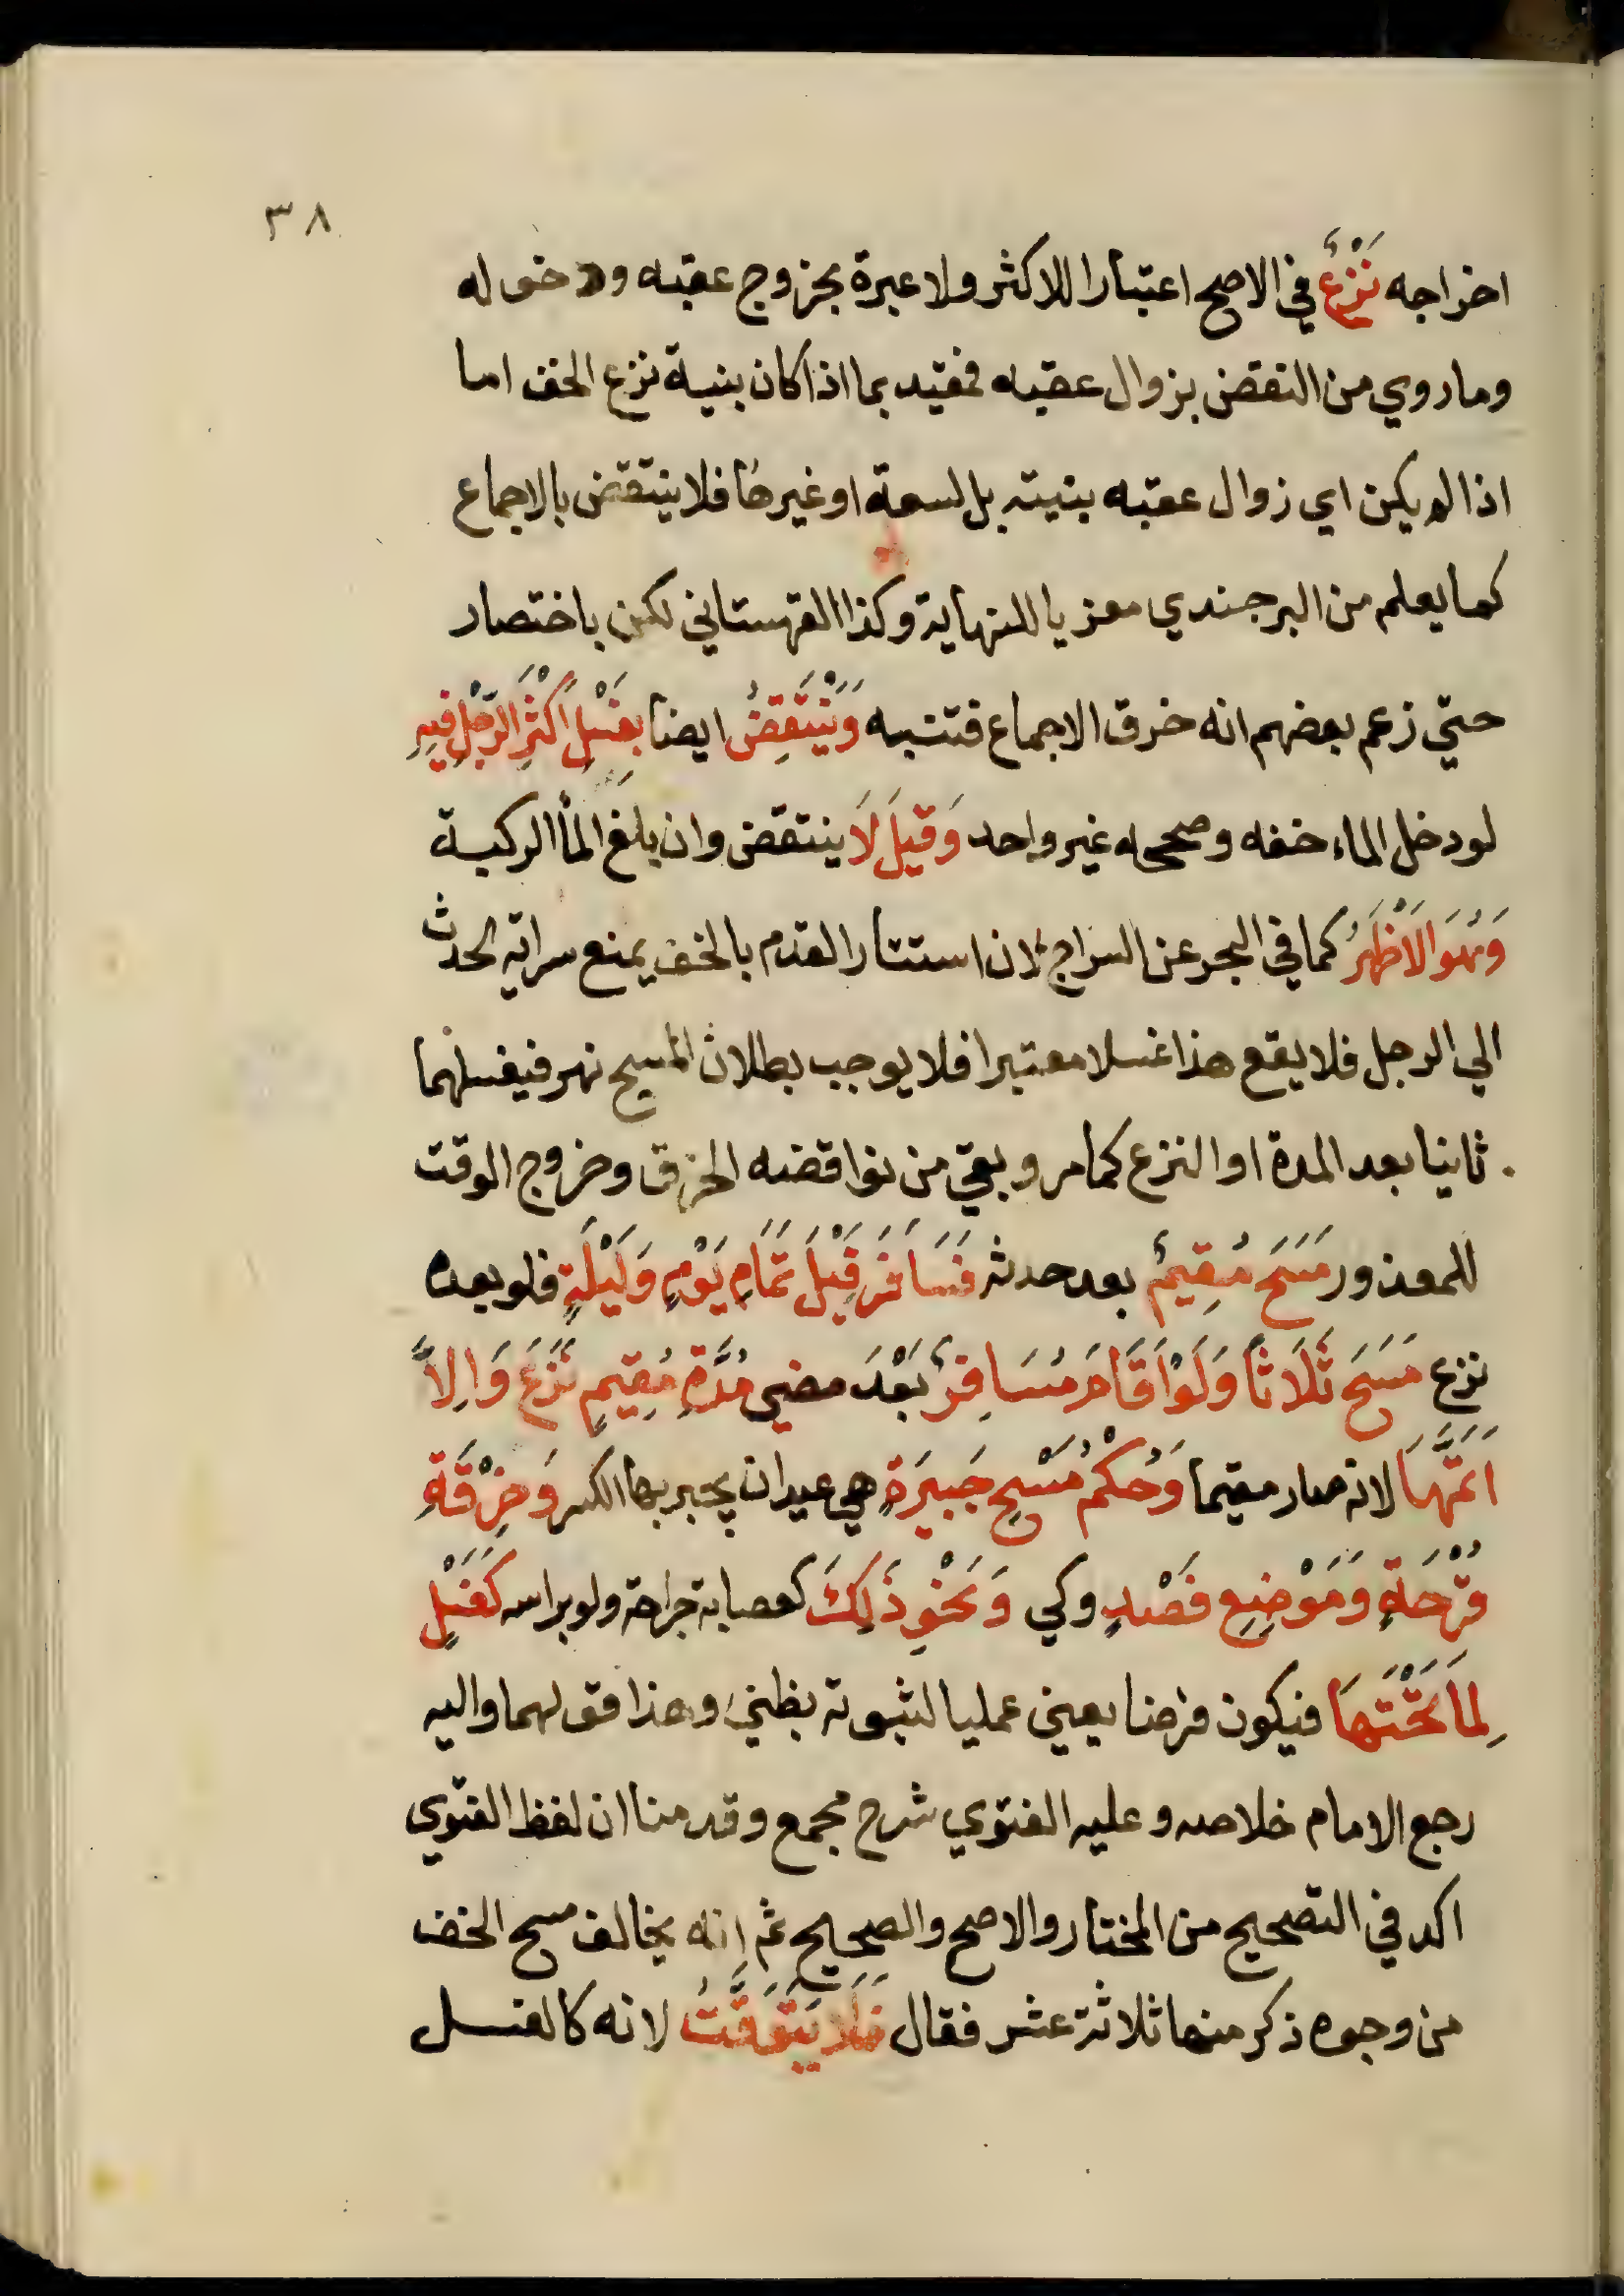 ٣٨
اخراجه نَزْعٌ في الاصح اعتبارا للاكثر ولا عبرة بخروج عقبه ودخوله
وما روي من النقض بزوال عقبه فمقيد بما اذا كان بنية نزع الخف اما
اذا لم يكن اي زوال عقبه بنيته بل لسعة او غيرها فلا ينتقض بالاجماع
كما يعلم من البرجندي معزيا للنهاية وكذا القهستاني لكن باختصار
حتي زعم بعضهم انه خرق الاجماع فتنبه وَيَنْتَقِضُ ايضا بِغَسْلِ اَكْثَرِ الرِّجْلِ فِيهِ
لو دخل الماء خفه وصححه غير واحد وَقِيلَ لَا ينتقض وان بلغ الماٴ الركبة
وَهُوَ الْاَظْهَرُ كما في البحر عن السراج لان استتار القدم بالخف يمنع سراية الحدث
الي الرجل فلا يقع هذا غسلا معتبرا فلا يوجب بطلان المسيح نهر فيغسلهما
ثانيا بعد المدة او النزع كما مر وبقي من نواقضه الخرق وخروج الوقت
للمعذور مَسَحَ مُقِيمٌ بعد حدثه فَسَافَرَ قَبْلَ تَمَامِ يَوْمٍ وَلَيْلَةٍ فلو بعده
نزع مَسَحَ ثَلَاثًا وَلَوْ اَقَامَ مُسَافِرٌ بَعْدَ مضي مُدَّةِ مُقِيمٍ نَزَعَ وَاِلَّا
اَتَمَّهَا لانه صار مقيما وَحُكْمُ مَسْحِ جَبِيرَةٍ هي عيدان يجبر بها الكسر وَخِرْقَةِ
قُرْحَةٍ وَمَوْضِعِ فَصْدٍ وكي وَنَحْوِ ذَلِكَ كعصابة جراحة ولو براسه كَغَسْلٍ
لِمَا تَحْتَهَا فيكون فرضا يعني عمليا لثبوته بظني وهذا قولهما واليه
رجع الامام خلاصه وعليه الفتوي شرح مجمع وقدمنا ان لفظ الفتوي
اكد في التصحيح من المختار والاصح والصحيح ثم اِنه يخالف مسح الخف
من وجوه ذكر منها ثلاثة عشر فقال فَلَا يَتَوَقَّتُ لانه كالغسل